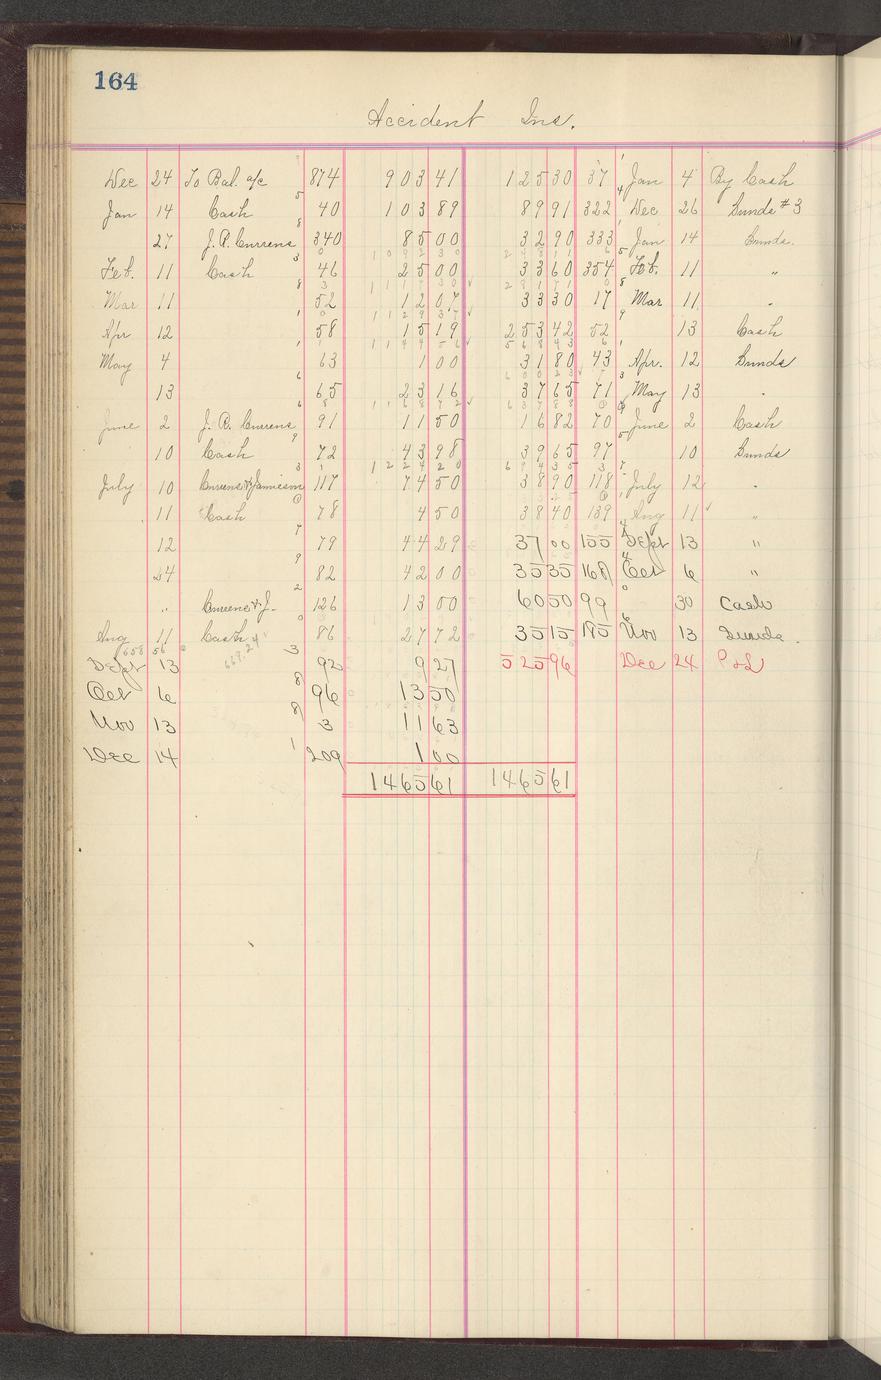 164
Accident Ins.
Dec 24 To Bal. a/c 874 903 41 125 30 37 Jan 4 By Cash
Jan 14 Cash 40 103 89 89 91 322 Dec 26 Sunds #3
27 J. P. Currens 340 85 00 32 90 333 Jan 14 Sunds.
Feb. 11 Cash 46 25 00 33 60 354 Feb. 11 "
Mar 11 52 12 07 33 30 17 Mar 11 "
Apr 12 58 15 19 253 42 52 13 Cash
May 4 63 1 00 31 80 43 Apr. 12 Sunds
13 65 23 16 37 65 71 May 13 "
June 2 J. P. Currens 91 11 50 16 82 70 June 2 Cash
10 Cash 72 43 98 39 65 97 10 Sunds
July 10 Currens & Jamieson 117 74 50 38 90 118 July 12 "
11 Cash 78 4 50 38 40 139 Aug 11 "
12 79 44 29 37 00 155 Sept 13 "
24 82 42 00 35 35 168 Oct 6 "
" Currens & J. 126 13 00 60 50 99 30 Cash
Aug 11 Cash 86 27 72 35 15 185 Nov 13 Sunds.
Sept 13 92 9 27 525 96 Dec 24 P & L
Oct 6 96 13 50
Nov 13 3 11 63
Dec 14 209 1 00
1465 61 1465 61